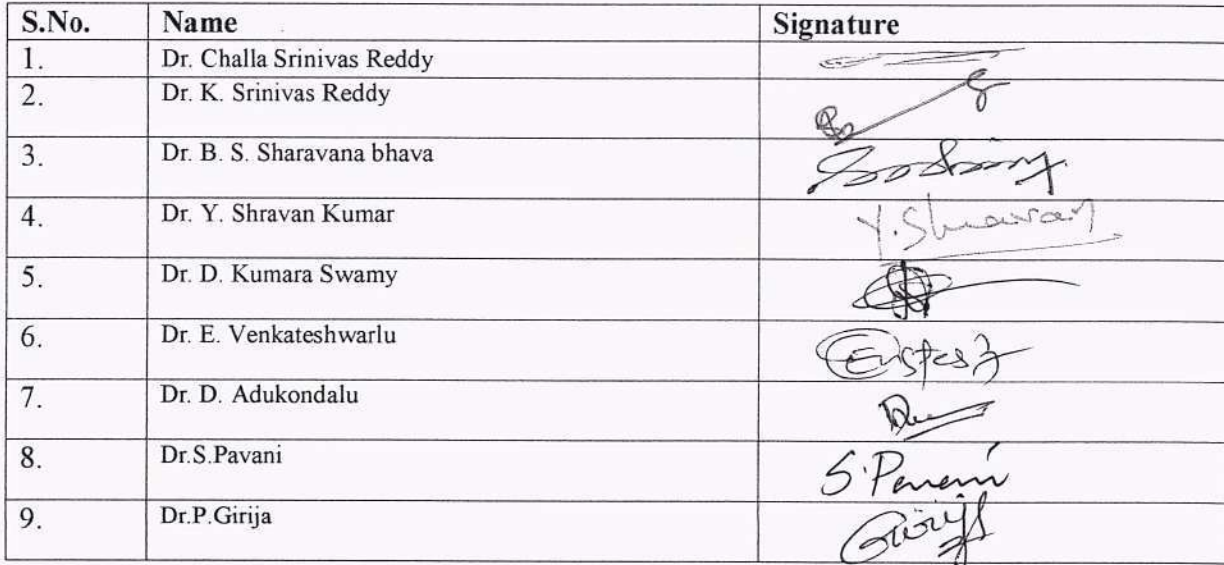 S.No. Name Signature
1. Dr. Challa Srinivas Reddy
2. Dr. K. Srinivas Reddy
3. Dr. B. S. Sharavana bhava
4. Dr. Y. Shravan Kumar Y.Shravan
5. Dr. D. Kumara Swamy
6. Dr. E. Venkateshwarlu
7. Dr. D. Adukondalu
8. Dr.S.Pavani S.Pavani
9. Dr.P.Girija Girija